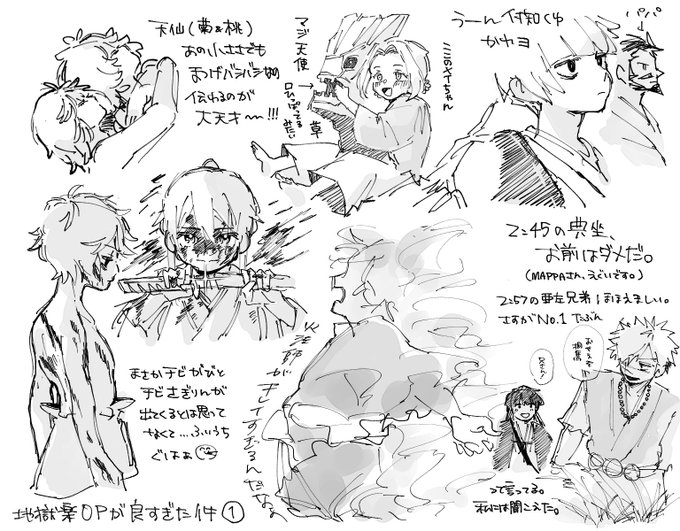 天仙(菊&桃)
あの小ささでも
まつげバシバシなの
伝わるのが
大天才〜!!!
マジ天使
口ひっぱってるみたい
草
ここのメイちゃん
うーん付知くん
かカヨ
パパ
2:45の典坐、
お前はダメだ。
(MAPPAさん、えぐいです。)
2:57の亜左兄弟、ほほえましい。
さすがNo.1 たぶん
まさかチビがびと
チビさぎりんが
出てくるとは思って
なくて…ふいうち
ぐはぁ
火法師が
キレイすぎるんだなぁ
兄さん!
おせえぞ
桐馬
って言ってる。
私には聞こえた。
地獄楽OPが良すぎた件①